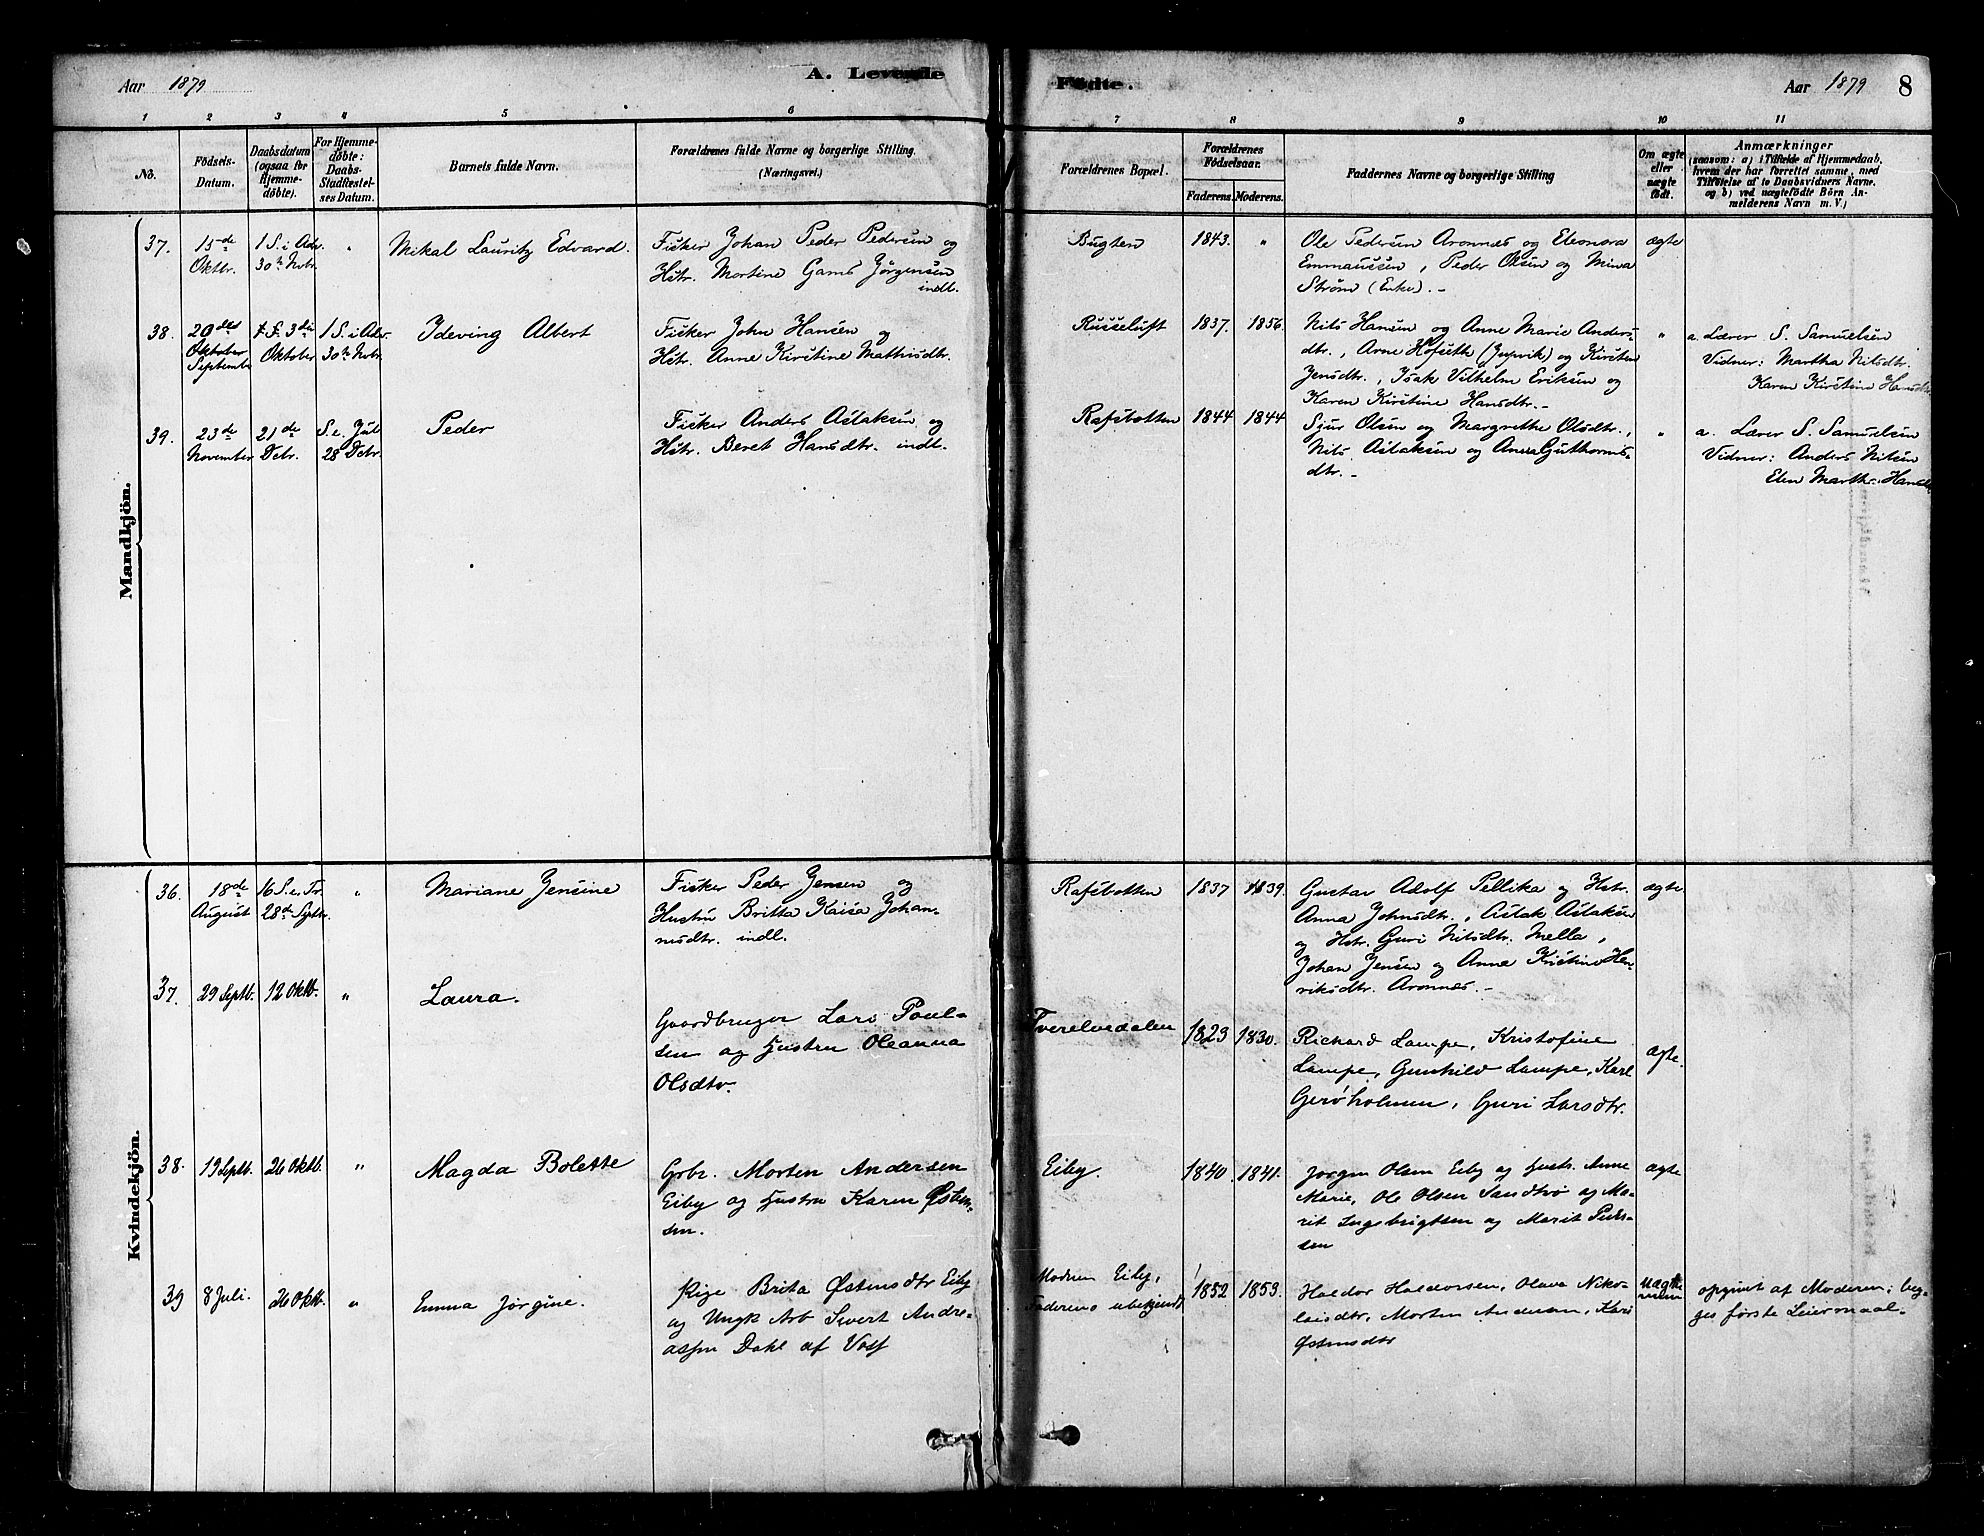 Aar 1879
A. Levende
Födte.
Aar 1879
8
1 2 3 4 5 6 7 8 9 10 11
No.
Födsels-
Datum.
Daabsdatum
(ogsaa for
Hjemme-
döbte).
For Hjemme-
döbte:
Daabs-
Stadfæstel-
ses Datum.
Barnets fulde Navn.
Forældrenes fulde Navne og borgerlige Stilling.
(Næringsvei.)
Forældrenes Bopæl.
Forældrenes
Födselsaar.
Faderens. Moderens.
Faddernes Navne og borgerlige Stilling
Om ægte
eller
uægte
födt.
Anmærkninger
(saasom: a) i Tilfælde af Hjemmedaab,
hvem der har forrettet samme, med
Tilföielse af to Daabsvidners Navne.
og b) ved uægtefödte Börn An-
melderens Navn m. V.)
Mandkjön.
37.
15de
Oktbr.
1 S. i Adv.
30te Nvbr.
"
Mikal Lauritz Edvard.
Fisker Johan Peder Pedersen og
Hstr. Mortine Gams Jørgensen
indl.
Bugten
1843.
"
Ole Pedersen Aronnæs og Eleonora
Emmaussen, Peder Olsen og Mina
Strøm (Enke). -
ægte
38.
20des
Oktober
September
3die
Oktober
1 S. i Adv.
30te Nvbr.
Ideving Albert
Fisker John Hansen og
Hstr. Anne Kirstine Mathisdtr.
Russeluft
1837.
1856.
Nils Hansen og Anne Marie Anders-
dtr., Arne Hofseth (Jupvik) og Kirsten
Jensdtr., Isak Vilhelm Eriksen og
Karen Kirstine Hansdtr. -
"
a. Lærer S. Samuelsen
Vidner: Martha Nilsdtr.
Karen Kirstine Hansdtr.
39.
23de
November
21de
Dcbr.
S. e. Jul
28 Dcbr.
Peder
Fisker Anders Aslaksen og
Hstr. Beret Hansdtr. indl.
Rafsbotten
1844
1844
Sjur Olsen og Margrethe Olsdtr.,
Nils Aslaksen og Anna Gutthorms-
dtr. -
"
a. Lærer S. Samuelsen
Vidner: Anders Nilsen
Elen Marthe Hansdtr.
Kvindekjön.
36.
18de
August
16 S. e. Tr.
28de Septbr.
"
Mariane Jensine
Fisker Peder Jensen og
Hustru Britta Kaisa Johan-
nesdtr. indl.
Rafsbotten
1837
1839.
Gustav Adolf Pellika og Hstr.
Anna Johnsdtr., Aslak Aslaksen
og Hstr. Guri Nilsdtr. Mella,
Johan Jensen og Anna Kristine Hen-
riksdtr. Aronnæs. -
ægte
37.
29 Septb.
12 Oktb.
"
Laura.
Gaardbruger Lars Paul-
sen og Hustru Oleanna
Olsdtr.
Tverelvedalen
1823
1830.
Richard Lampe, Kristofine
Lampe, Gunhild Lampe, Karl
Gerøholmen, Guri Larsdtr.
ægte.
38.
19 Septb.
26 Oktb.
"
Magda Bolette
Grbr. Morten Andersen
Eiby og Hustru Karen Østen-
sen.
Eiby.
1840.
1841.
Jørgen Olsen Eiby og Hustr. Anne
Marie, Ole Olsen Sandbø og Ma-
rit Ingebrigtsen og Marit Peder-
sen
ægte
39
8 Juli.
26 Oktb.
"
Emma Jørgine.
Pige Brita Østensdtr Eiby
og Ungk Arb Sivert Andre-
assen Dahl af Voss
Modren Eiby,
Faderens ubekjendt
1852
1853.
Haldor Haldorsen, Olava Niko-
laisdtr, Morten Andersen, Kari
Østensdtr
Uægte
opgivet af Moderen; beg-
ges første Leiermaal.